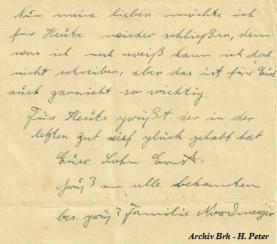 Nun, meine lieben möchte ich
für Heute wieder schließen, denn
was ich noch weiß kann ich doch
nicht schreiben, aber das ist für Euch
auch garnicht so wichtig.
Fürs Heute grüßt der in der
letzten Zeit viel glück gehabt hat
Euer Sohn Ernst.
Grüß an alle bekannten
bes. grüß Familie
Archiv Brk - H. Peter